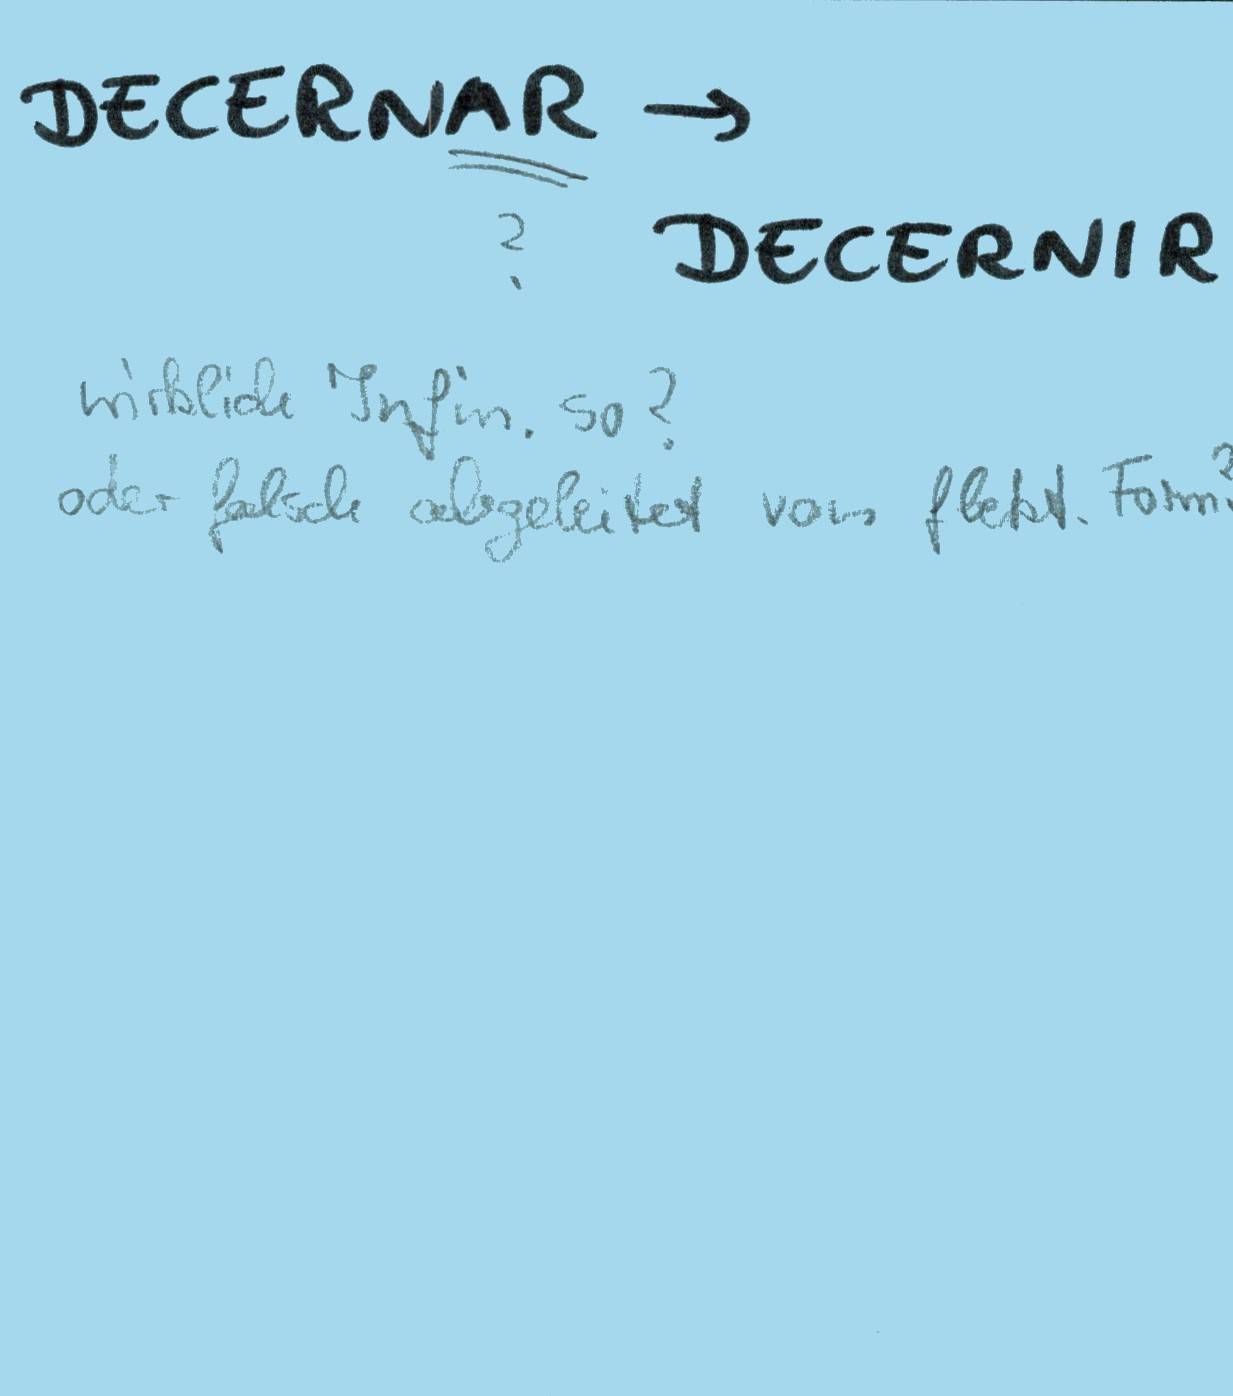 DECERNAR →
DECERNIR
?
wirklich Infin. so?
oder falsch abgeleitet von flekt. Form?